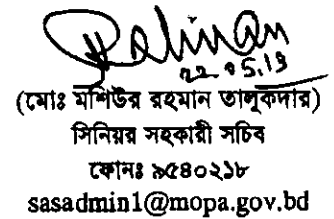 22.05.13
(মোঃ মশিউর রহমান তালুকদার)
সিনিয়র সহকারী সচিব
ফোনঃ ৯৫৪০২১৮
sasadmin1@mopa.gov.bd